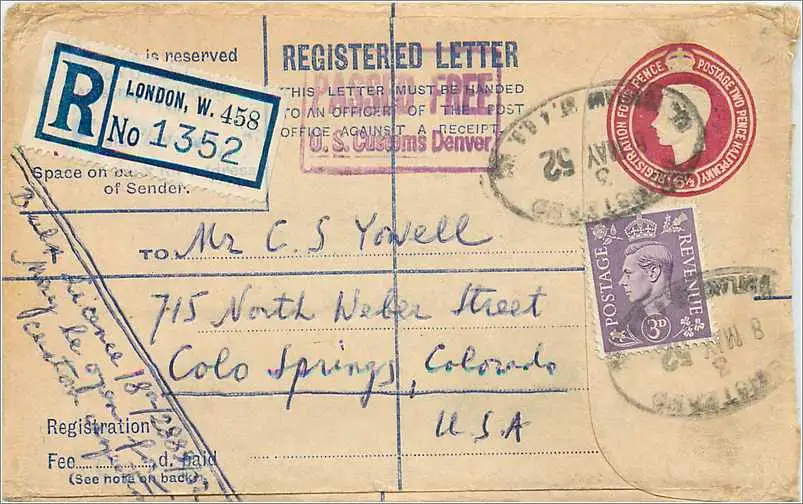 is reserved
REGISTERED LETTER
THIS LETTER MUST BE HANDED
TO AN OFFICER OF THE POST
OFFICE AGAINST A RECEIPT.
PASSED FREE
U. S. Customs Denver
R
LONDON, W. 458
No 1352
REGISTRATION FOUR PENCE POSTAGE TWO PENCE HALFPENNY
MAY 52
Space on back
of Sender.
TO Mr C. S Yowell
715 North Weber Street
Colo Springs, Colorado
U.S.A
POSTAGE REVENUE
3D
8 MY 52
Bulk Licence
May be opened for
Registration
Fee d. paid
(See note on back)